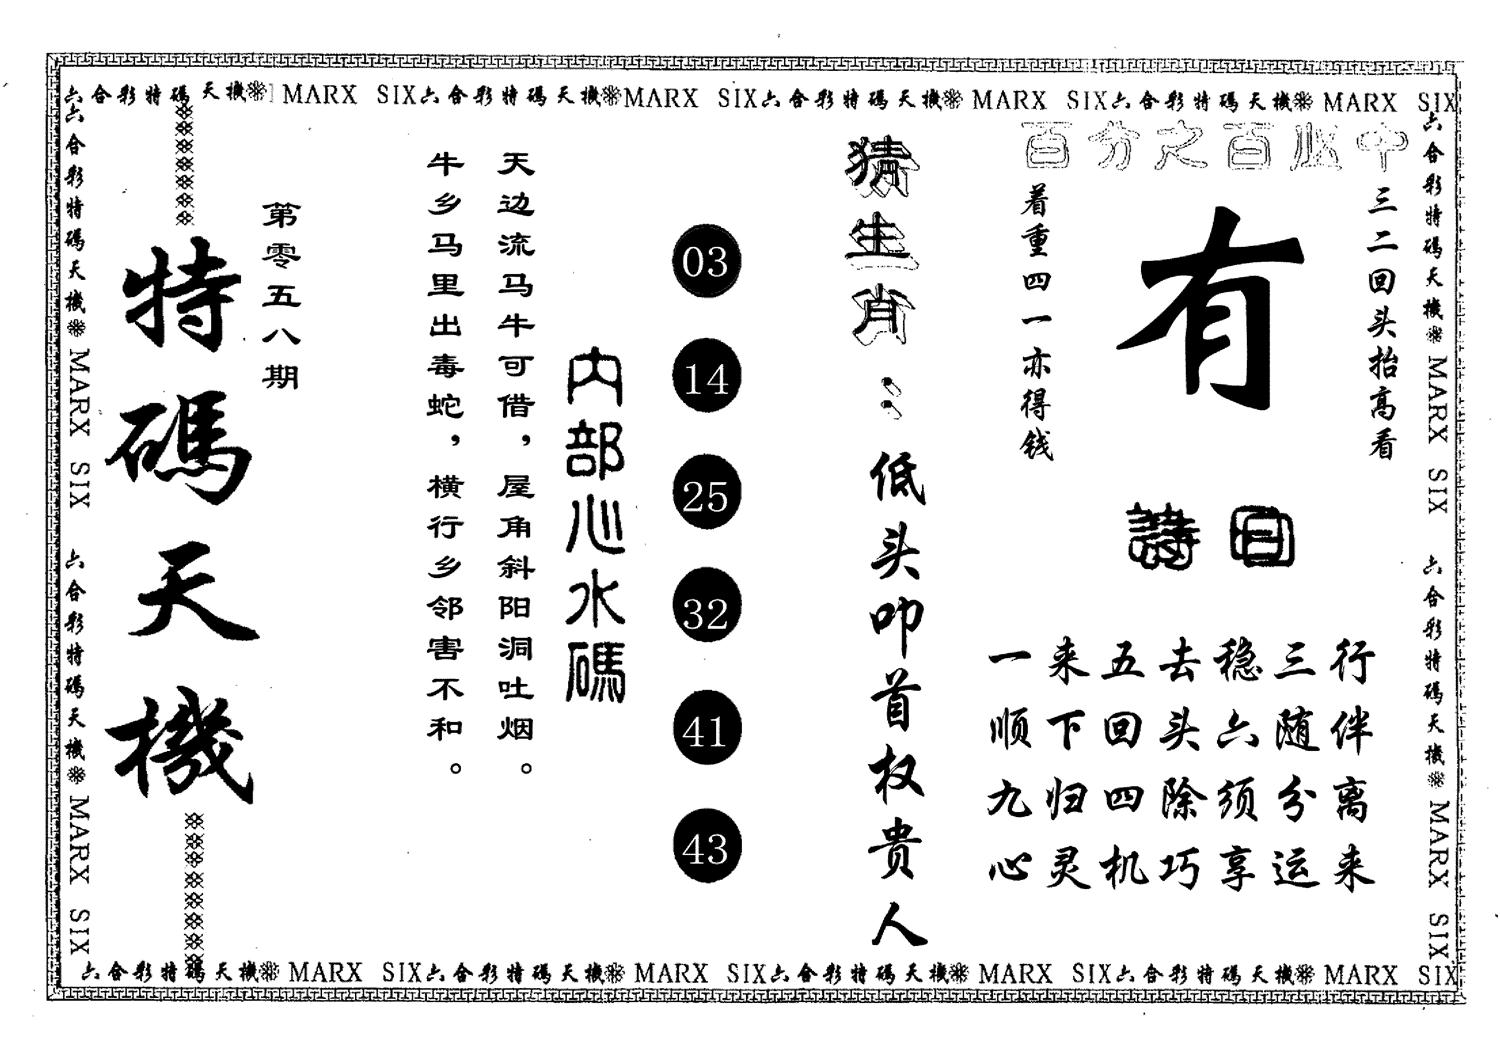 六合彩特碼天機 MARX SIX六合彩特碼天機MARX SIX六合彩特碼天機 MARX SIX六合彩特碼天機 MARX SIX
六合彩特碼天機 MARX SIX 六合彩特碼天機 MARX SIX
百分之百必中
三二回头抬高看
有
着重四一亦得钱
詩曰
一来五去稳三行
顺下回头六随伴
九归四除须分离
心灵机巧享运来
猜生肖：低头叩首权贵人
03
14
25
32
41
43
内部心水碼
天边流马牛可借，屋角斜阳洞吐烟。
牛乡马里出毒蛇，横行乡邻害不和。
第零五八期
特碼天機
六合彩特碼天機 MARX SIX 六合彩特碼天機 MARX SIX
六合彩特碼天機 MARX SIX六合彩特碼天機 MARX SIX六合彩特碼天機 MARX SIX六合彩特碼天機 MARX SIX